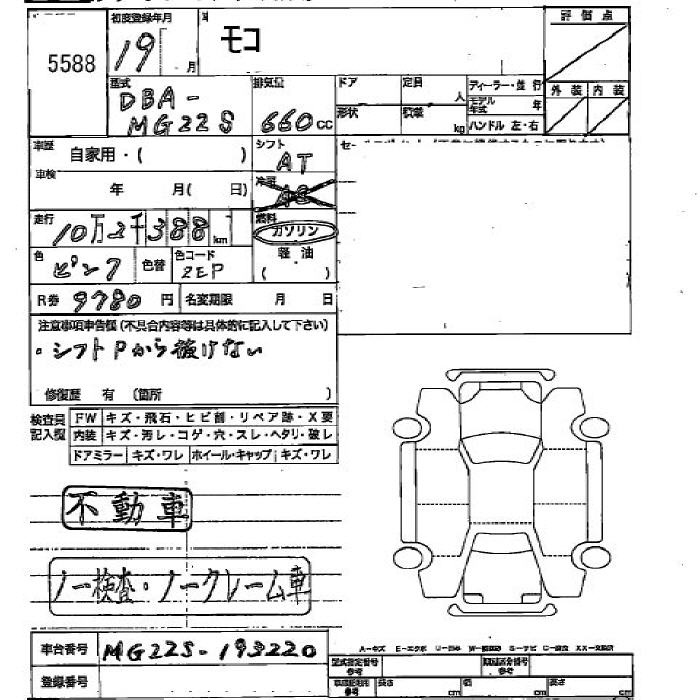 5588
初度登録年月 19 月
モコ
評価点
型式 DBA-
MG22S
排気量 660 cc
ドア 定員 人
形状 積載 kg
ディーラー・並行
モデル年式 年
ハンドル 左・右
外装 内装
車歴 自家用・( )
シフト AT
車検 年 月( 日)
冷房 AC
走行 10万2千388 km
燃料 ガソリン
軽油
( )
色 ピンク 色替 色コード ZEP
R券 9780 円 名変期限 月 日
注意事項申告欄(不具合内容等は具体的に記入して下さい)
・シフトPから抜けない
修復歴 有 (箇所 )
検査員記入欄
FW キズ・飛石・ヒビ割・リペア跡・X要
内装 キズ・汚レ・コゲ・穴・スレ・ヘタリ・破レ
ドアミラー キズ・ワレ ホイール・キャップ キズ・ワレ
不動車
ノー検査・ノークレーム車
車台番号 MG22S-193220
登録番号
A-キズ E-エクボ
型式指定番号 類別区分番号
参考 長さ cm 幅 cm 高さ cm